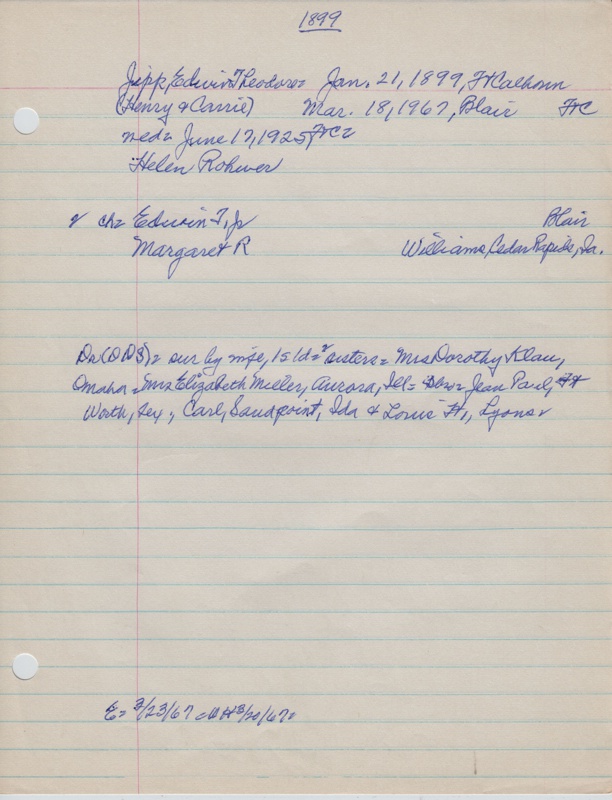 1899
Jipp, Edwin Theodore= Jan. 21, 1899, Ft Calhoun
(Henry & Carrie) Mar. 18, 1967, Blair FtC
med= June 17, 1925, FtC=
Helen Rohwer
2 ch= Edwin T, Jr Blair
Margaret R Williams, Cedar Rapids, Ia.
Dr (DDS)= sur by wife, 1s 1d= 2 sisters= Mrs Dorothy Klau,
Omaha = Mrs Elizabeth Miller, Aurora, Ill= Jean Paul, Ft
Worth, Tex., Carl, Sandpoint, Ida & Louis H,, Lyons
E= 3/23/67 = WH 3/20/67=